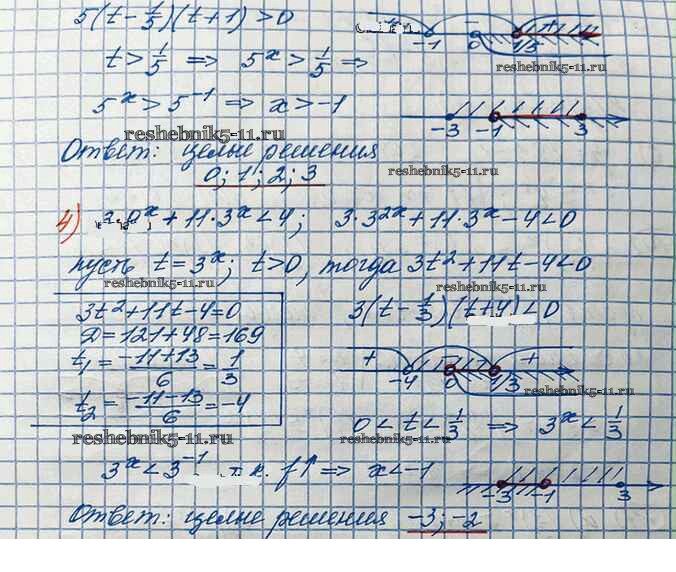 5(t - 1/5)(t + 1) > 0
+ - + -1 0 1/5
reshebnik5-11.ru
t > 1/5 ⇒ 5^x > 1/5 ⇒
5^x > 5^-1 ⇒ x > -1
-3 -1 3
reshebnik5-11.ru
Ответ: целые решения
reshebnik5-11.ru
0; 1; 2; 3
4) 3·9^x + 11·3^x < 4; 3·3^2x + 11·3^x - 4 < 0
пусть t = 3^x; t > 0, тогда 3t² + 11t - 4 < 0
reshebnik5-11.ru
reshebnik5-11.ru
3t² + 11t - 4 = 0
3(t - 1/3)(t + 4) < 0
D = 121 + 48 = 169
t₁ = (-11 + 13)/6 = 1/3
+ - + -4 0 1/3
t₂ = (-11 - 13)/6 = -4
reshebnik5-11.ru
0 < t < 1/3 ⇒ 3^x < 1/3
reshebnik5-11.ru
reshebnik5-11.ru
3^x < 3^-1 т.к. f↑ ⇒ x < -1
-3 -1 3
Ответ: целые решения -3; -2